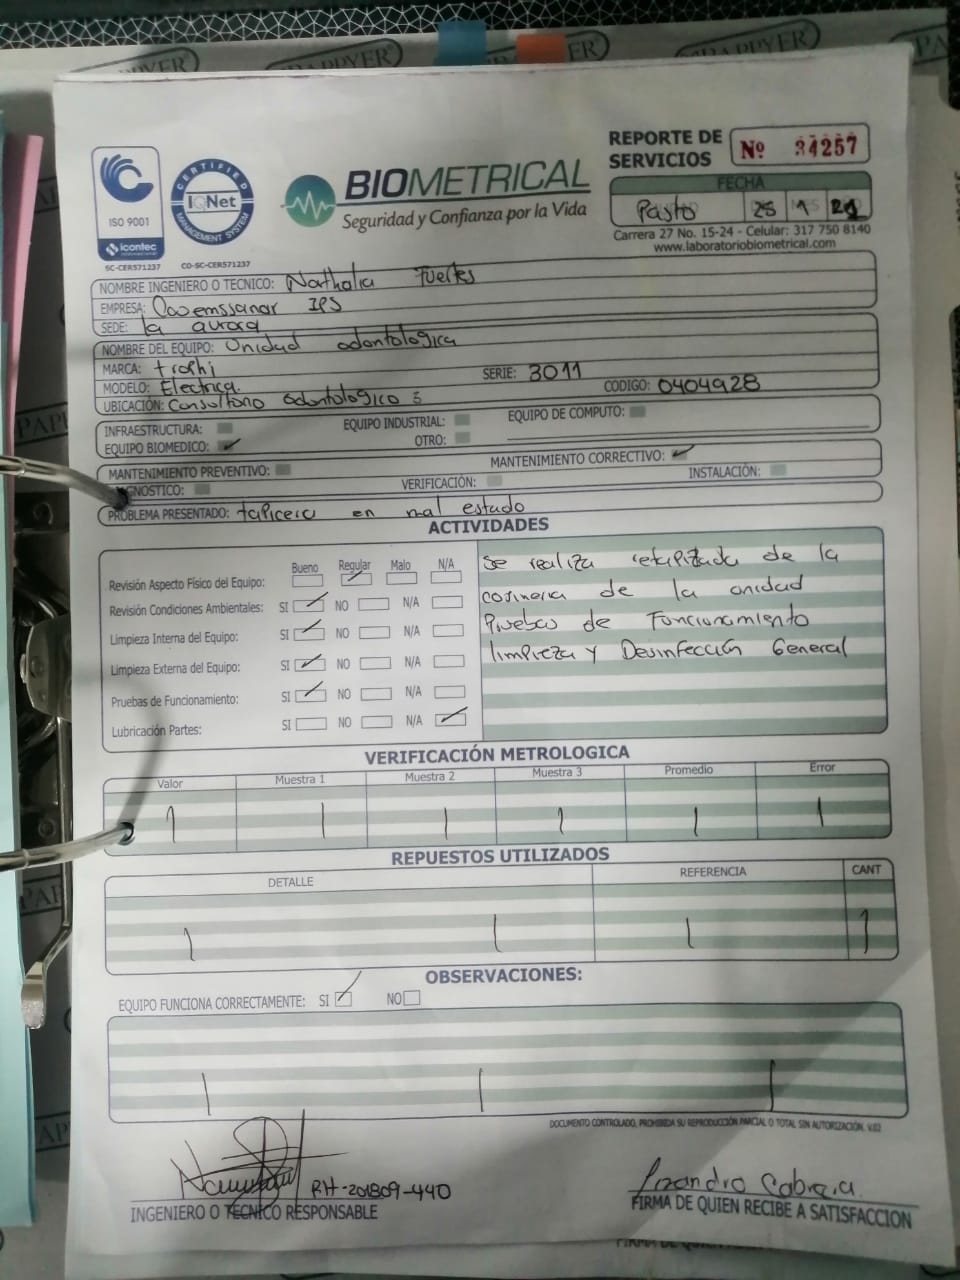 REPORTE DE SERVICIOS Nº 34257
CERTIFIED MANAGEMENT SYSTEM
IQNet
ISO 9001
icontec
SC-CER571237 CO-SC-CER571237
BIOMETRICAL
Seguridad y Confianza por la Vida
FECHA
Pasto 25 1 21
Carrera 27 No. 15-24 - Celular: 317 750 8140
www.laboratoriobiometrical.com
NOMBRE INGENIERO O TECNICO: Nathalia Fuertes
EMPRESA: IPS
SEDE: la aurora
NOMBRE DEL EQUIPO: Unidad odontologica
MARCA: trophi SERIE: 3011
MODELO: Electrica. CODIGO: 0404928
UBICACIÓN: Consultorio odontologico
INFRAESTRUCTURA: EQUIPO INDUSTRIAL: EQUIPO DE COMPUTO:
EQUIPO BIOMEDICO: ✓ OTRO:
MANTENIMIENTO PREVENTIVO: MANTENIMIENTO CORRECTIVO: ✓
GNOSTICO: VERIFICACIÓN: INSTALACIÓN:
PROBLEMA PRESENTADO: tapiceria en mal estado
ACTIVIDADES
Bueno Regular Malo N/A
Revisión Aspecto Físico del Equipo:
Revisión Condiciones Ambientales: SI NO N/A
Limpieza Interna del Equipo: SI NO N/A
Limpieza Externa del Equipo: SI NO N/A
Pruebas de Funcionamiento: SI NO N/A
Lubricación Partes: SI NO N/A
se realiza retapizada de la
cojineria de la unidad
Pruebas de Funcionamiento
limpieza y Desinfección General
VERIFICACIÓN METROLOGICA
Valor Muestra 1 Muestra 2 Muestra 3 Promedio Error
REPUESTOS UTILIZADOS
DETALLE REFERENCIA CANT
OBSERVACIONES:
EQUIPO FUNCIONA CORRECTAMENTE: SI NO
DOCUMENTO CONTROLADO, PROHIBIDA SU REPRODUCCIÓN PARCIAL O TOTAL SIN AUTORIZACIÓN. V.02
RH-201809-440
INGENIERO O TECNICO RESPONSABLE
FIRMA DE QUIEN RECIBE A SATISFACCION